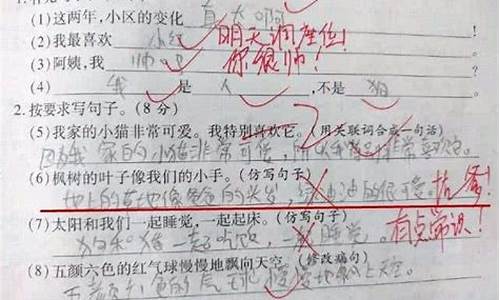 (1)这两年,小区的变化 真大啊
(2)我最喜欢 小红 明天调座位!
(3)阿姨,我 帅吗 你很帅!
(4) 我 是 人 ,不是 狗
2.按要求写句子。(8 分)
(5)我家的小猫非常可爱。我特别喜欢它。(用关联词合成一句话)
因为我家的小猫非常可爱,所以我非常喜欢它。
(6)枫树的叶子像我们的小手。(仿写句子)
地上的草地像爸爸的头发,绿油油的很可爱。
(7)太阳和我们一起睡觉,一起起床。(仿写句子)
狗和猪一起吃饭,一起睡觉。 有点常识!
(8)五颜六色的红气球慢慢地飘向天空。(修改病句)
五颜六色的气球慢慢地飘上天空。